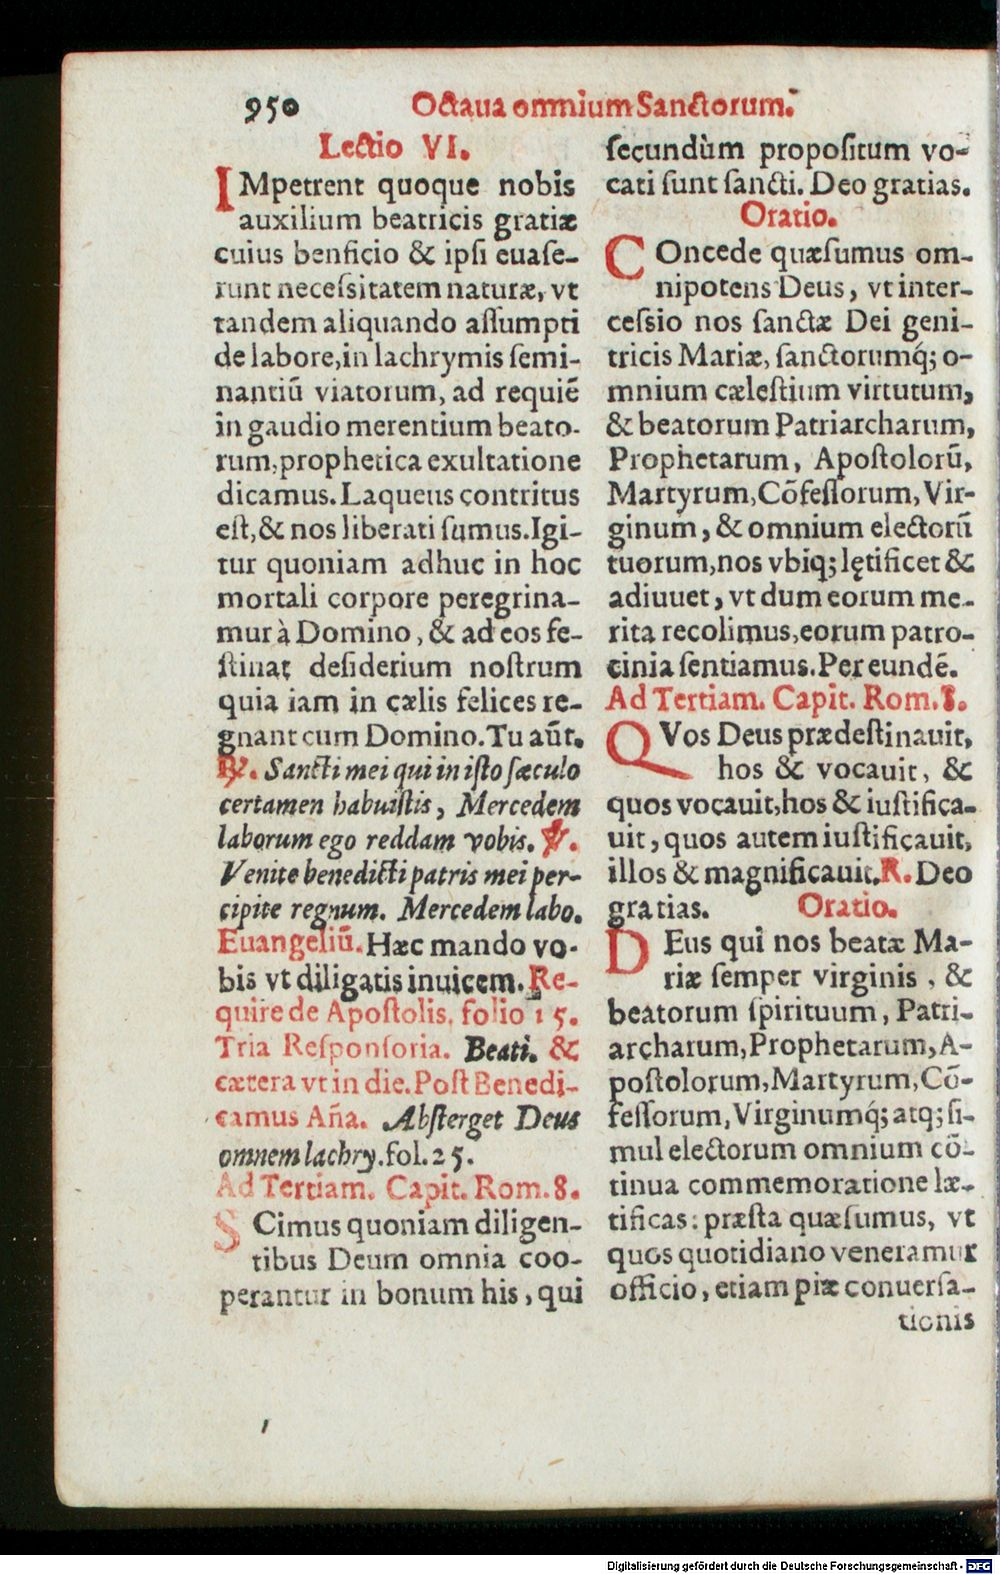 950
Octaua omnium Sanctorum.
Lectio VI.
IMpetrent quoque nobis
auxilium beatricis gratiæ
cuius benficio & ipsi euase-
runt necessitatem naturæ, vt
tandem aliquando assumpti
de labore, in lachrymis semi-
nantiū viatorum, ad requiē
in gaudio merentium beato-
rum, prophetica exultatione
dicamus. Laqueus contritus
est, & nos liberati sumus. Igi-
tur quoniam adhuc in hoc
mortali corpore peregrina-
mur à Domino, & ad eos fe-
stinat desiderium nostrum
quia iam in cælis felices re-
gnant cum Domino. Tu aūt.
℟. Sancti mei qui in isto sæculo
certamen habuistis, Mercedem
laborum ego reddam vobis. ℣.
Venite benedicti patris mei per-
cipite regnum. Mercedem labo.
Euangeliū. Hæc mando vo-
bis vt diligatis inuicem. Re-
quire de Apostolis. folio 15.
Tria Responsoria. Beati. &
cætera vt in die. Post Benedi-
camus Aña. Absterget Deus
omnem lachry. fol. 25.
Ad Tertiam. Capit. Rom. 8.
SCimus quoniam diligen-
tibus Deum omnia coo-
perantur in bonum his, qui
secundùm propositum vo-
cati sunt sancti. Deo gratias.
Oratio.
COncede quæsumus om-
nipotens Deus, vt inter-
cessio nos sanctæ Dei geni-
tricis Mariæ, sanctorumq́; o-
mnium cælestium virtutum,
& beatorum Patriarcharum,
Prophetarum, Apostolorū,
Martyrum, Cōfessorum, Vir-
ginum, & omnium electorū
tuorum, nos vbiq; lętificet &
adiuuet, vt dum eorum me-
rita recolimus, eorum patro-
cinia sentiamus. Per eundē.
Ad Tertiam. Capit. Rom. 8.
QVos Deus prædestinauit,
hos & vocauit, &
quos vocauit, hos & iustifica-
uit, quos autem iustificauit,
illos & magnificauit. R. Deo
gratias. Oratio.
DEus qui nos beatæ Ma-
riæ semper virginis, &
beatorum spirituum, Patri-
archarum, Prophetarum, A-
postolorum, Martyrum, Cō-
fessorum, Virginumq́; atq; si-
mul electorum omnium cō-
tinua commemoratione læ-
tificas: præsta quæsumus, vt
quos quotidiano veneramur
officio, etiam piæ conuersa-
tionis
Digitalisierung gefördert durch die Deutsche Forschungsgemeinschaft - DFG